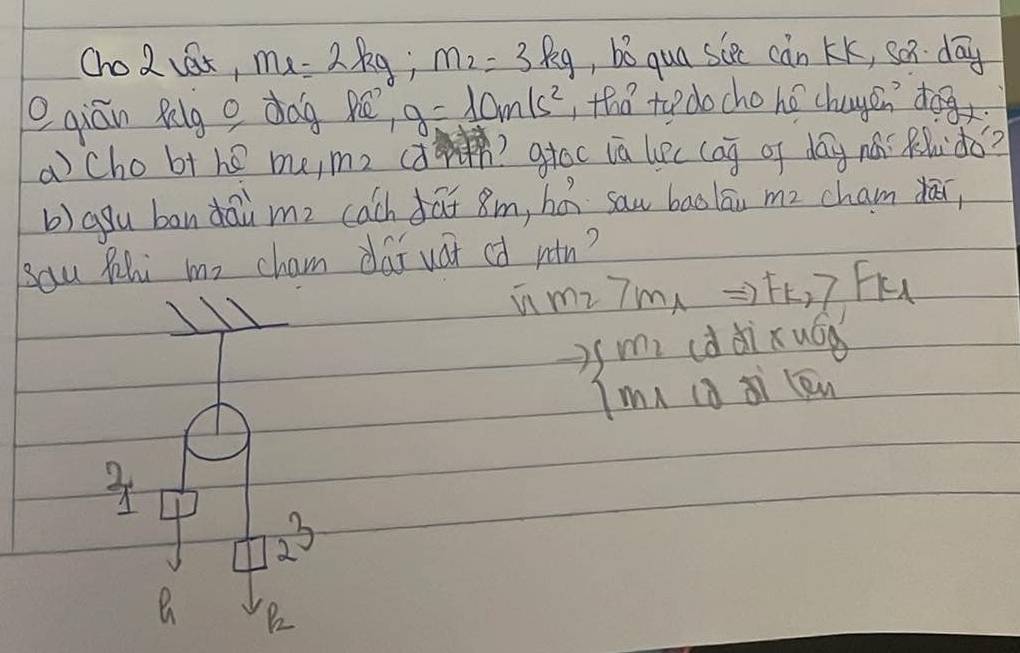 Cho 2 vật, m1 = 2kg; m2 = 3kg, bỏ qua sức cản KK, sợi dây
0 giãn klg 0 đág kể, g = 10m/s², thả tự do cho hệ chuyển độg.
a) Cho bt hệ m1, m2 cđ ntn? gtoc và lực căg of dây nối khi đó?
b) gsu ban đầu m2 cách đất 8m, hỏi sau bao lâu m2 chạm đất,
sau khi m2 chạm đất vật cđ ntn?
Vì m2 > m1 => Fk2 > Fk1
→ { m2 cđ đi xuốg
m1 cđ đi lên
2
1
2 3
P1
P2